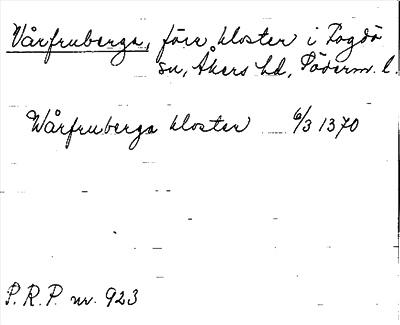 Vårfruberga, förr kloster i Fogdö
sn, Åkers hd, Söderm. l.
Wårfruberga kloster 6/3 1370
P.R.P. nr. 923